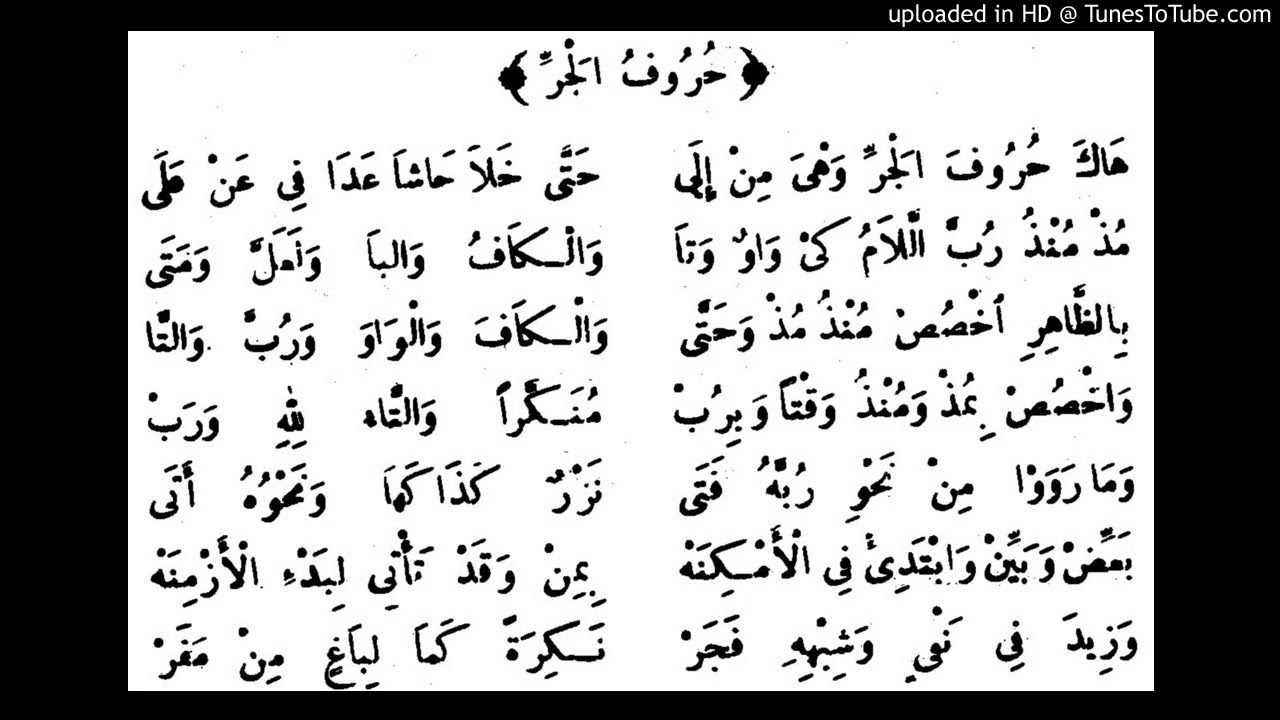 uploaded in HD @ TunesToTube.com
﴿حُرُوفُ الْجَرِّ﴾
هَاكَ حُرُوفَ الْجَرِّ وَهْىَ مِنْ إِلَى حَتَّى خَلاَ حَاشَا عَدَا فِى عَنْ عَلَى
مُذْ مُنْذُ رُبَّ الَّلاَمُ كَىْ وَاوٌ وَتَا وَالْكَافُ وَالْبَا وَلَعَلَّ وَمَتَى
بِالظَّاهِرِ اخْصُصْ مُنْذُ مُذْ وَحَتَّى وَالْكَافَ وَالْوَاوَ وَرُبَّ وَالتَّا
وَاخْصُصْ بِمُذْ وَمُنْذُ وَقْتاً وَبِرُبْ مُنَكَّراً وَالتَّاءِ لِلّهِ وَرَبْ
وَمَا رَوَوْا مِنْ نَحْوِ رُبَّهُ فَتَى نَزْرٌ كَذَا كَهَا وَنَحْوُهُ أَتَى
بَعِّضْ وَبَيِّنْ وَابْتَدِئْ فِى الْأَمْكِنَهْ بِمِنْ وَقَدْ تَأْتِى لِبَدْءِ الْأَزْمِنَهْ
وَزِيدَ فِى نَفْىٍ وَشِبْهِهِ فَجَرْ نَكِرَةً كَمَا لِبَاغٍ مِنْ مَفَرْ